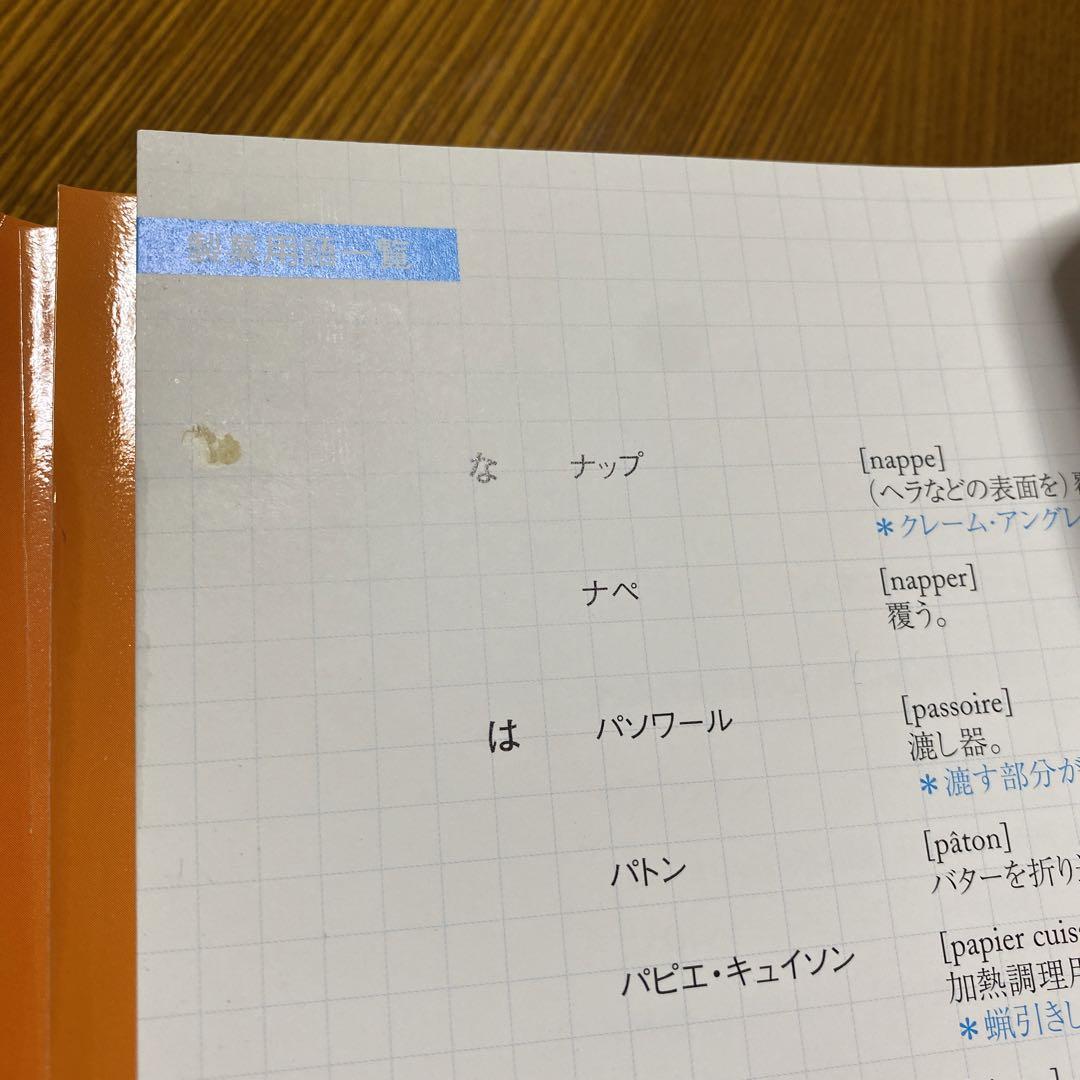 製菓用語一覧
な ナップ [nappe]
(ヘラなどの表面を)覆
*クレーム・アングレ
ナペ [napper]
覆う。
は パソワール [passoire]
漉し器。
*漉す部分が
パトン [pâton]
バターを折り
パピエ・キュイソン [papier cuiss
加熱調理用
*蝋引きし